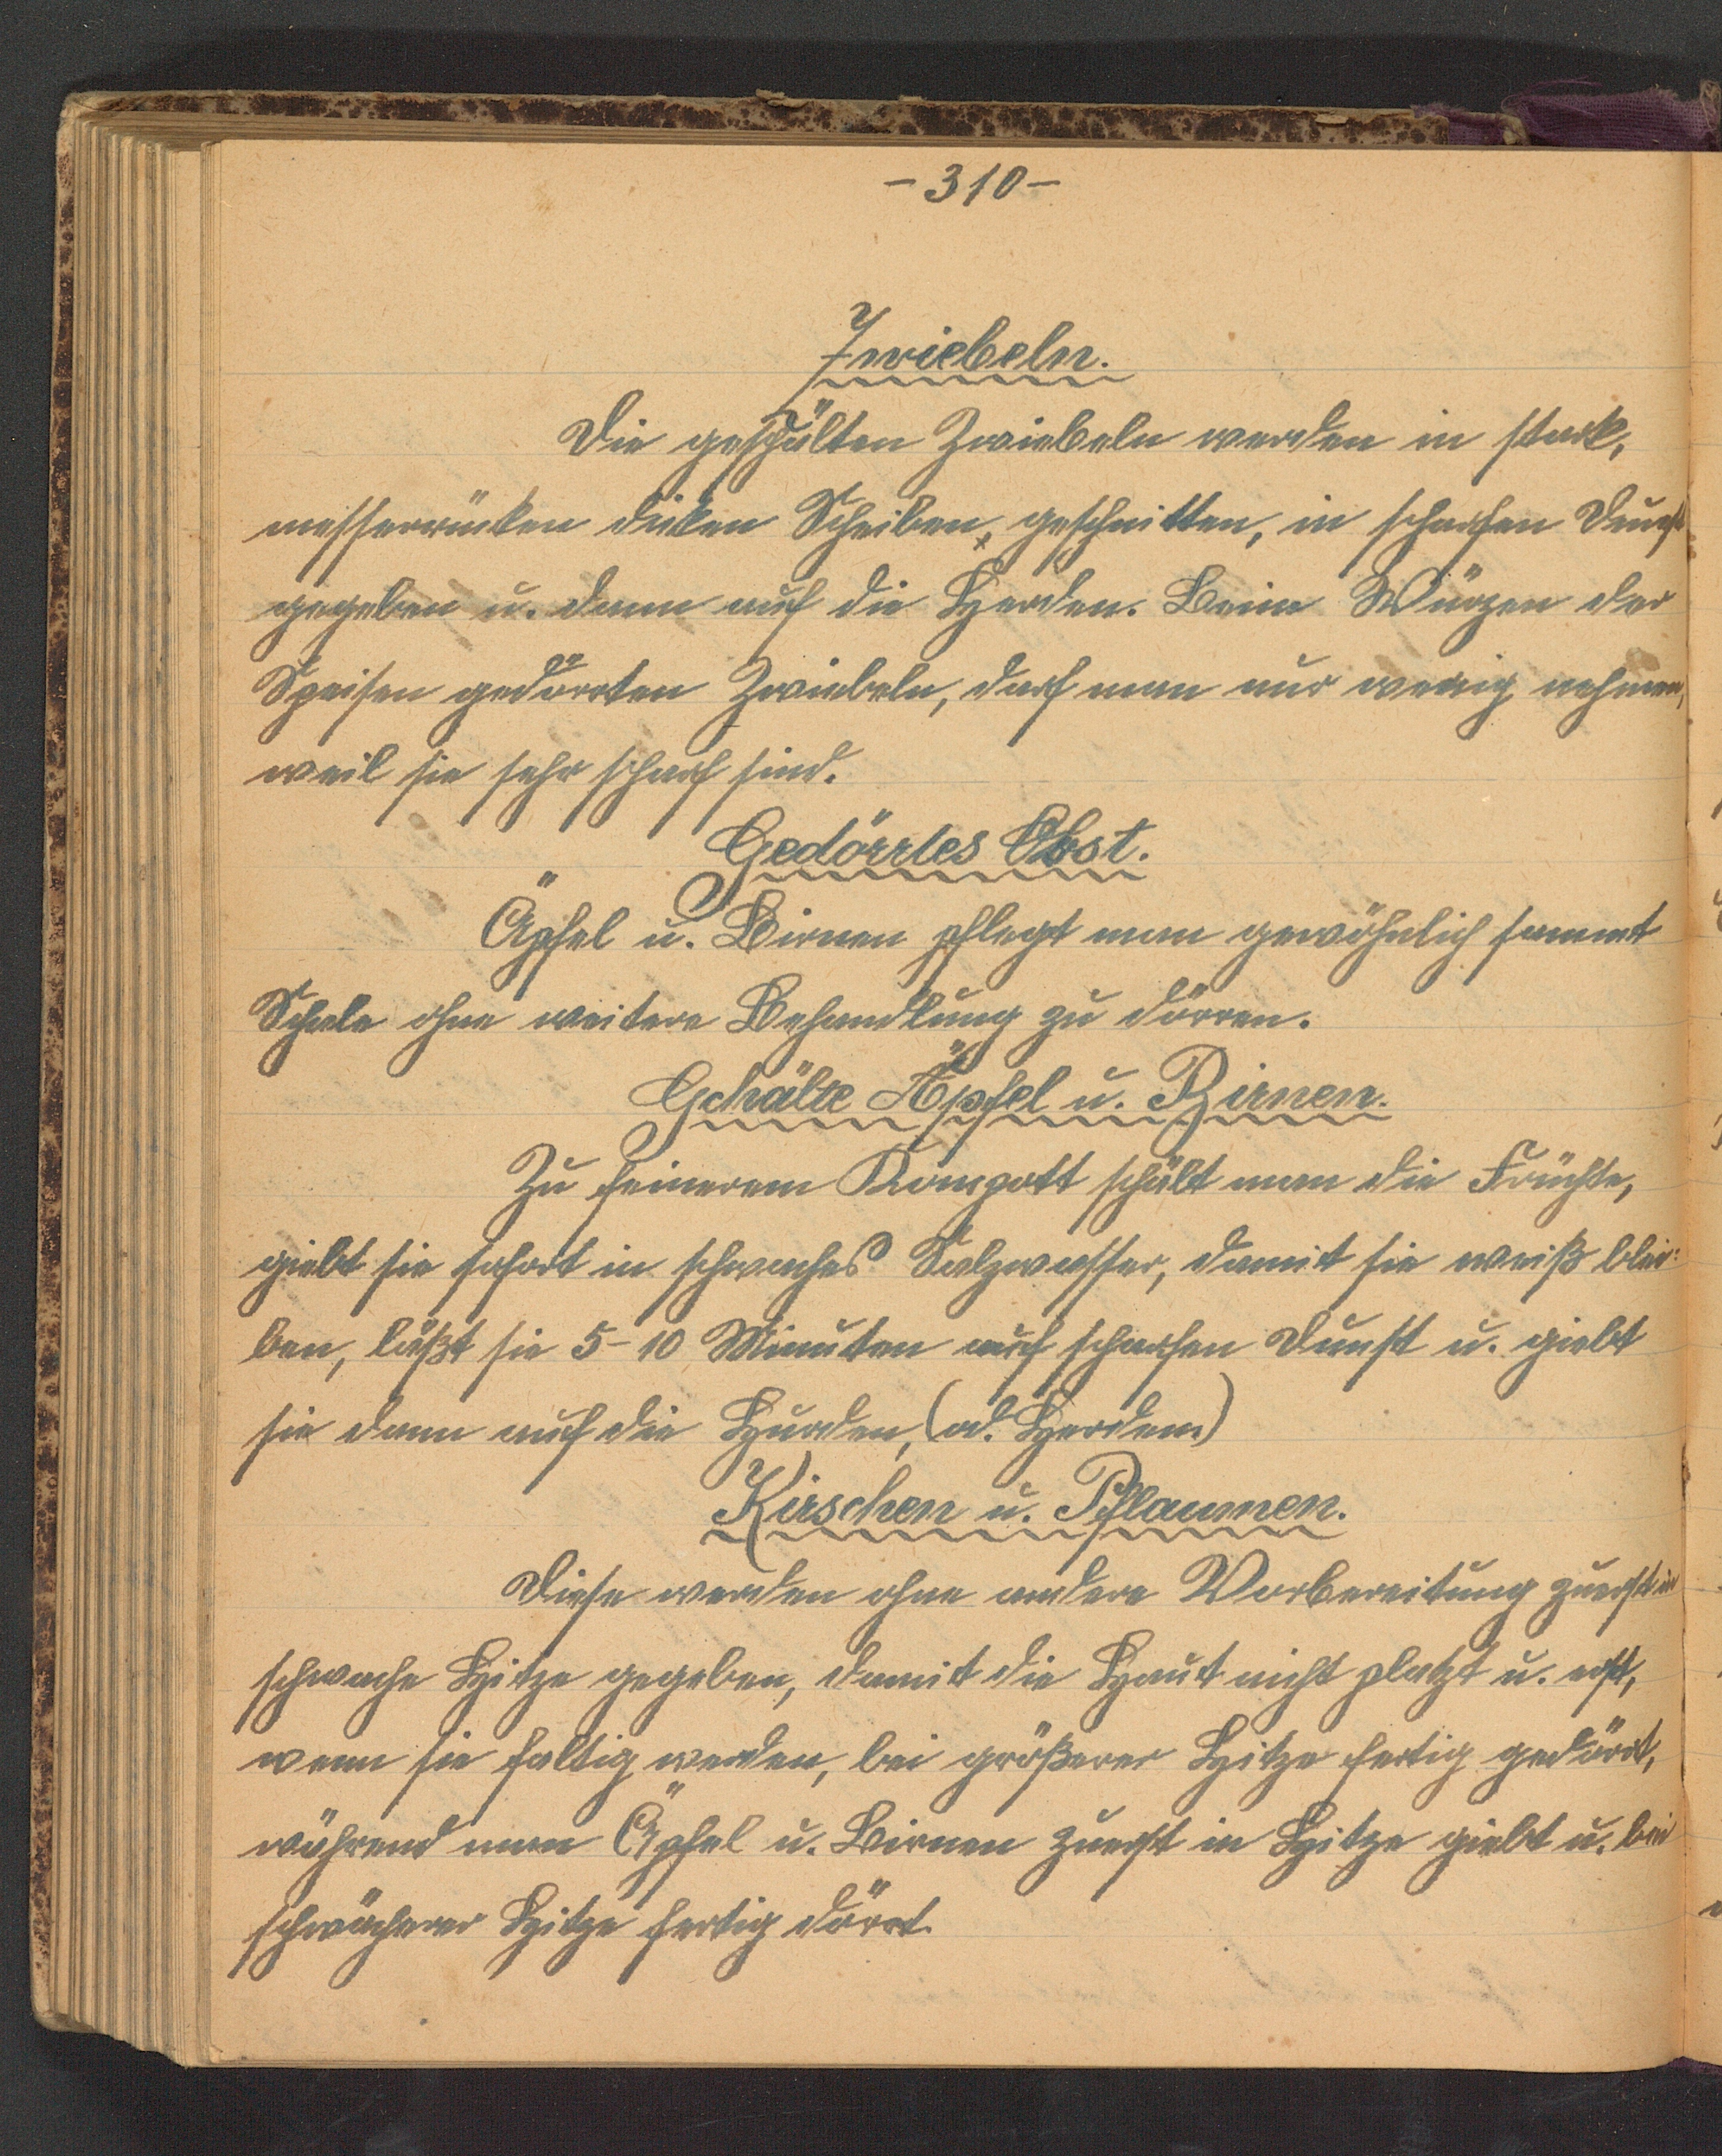 -310-
Zwiebeln.
Die geschälten Zwiebeln werden in stark,
messerrücken dicken Scheiben, geschnitten, in scharfen Dunst
gegeben u. dann auf die Herden. Beim Würzen der
Speisen gedörrten Zwiebeln, darf man nur wenig nehmen,
weil sie sehr scharf sind.
Gedörrtes Obst.
Äpfel u. Birnen pflegt man gewöhnlich sammt
Schale ohne weitere Behandlung zu dörren.
Gehälte Äpfel u. Birnen.
Zu feinerem Kompott schält man die Früchte,
giebt sie sofort in schwaches Salzwasser, damit sie weiß blei:
ben, läßt sie 5-10 Minuten auf scharfen Dunst u. giebt
sie dann auf die Hurden, (od. Herden.)
Kirschen u. Pflaumen.
Diese werden ohne andere Vorbereitung zuerst in
schwache Hitze gegeben, damit die Haut nicht platzt u. erst,
wenn sie faltig werden, bei größerer Hitze fertig gedörrt,
während man Äpfel u. Birnen zuerst in Hitze giebt u. bei
schwächerer Hitze fertig dörrt.